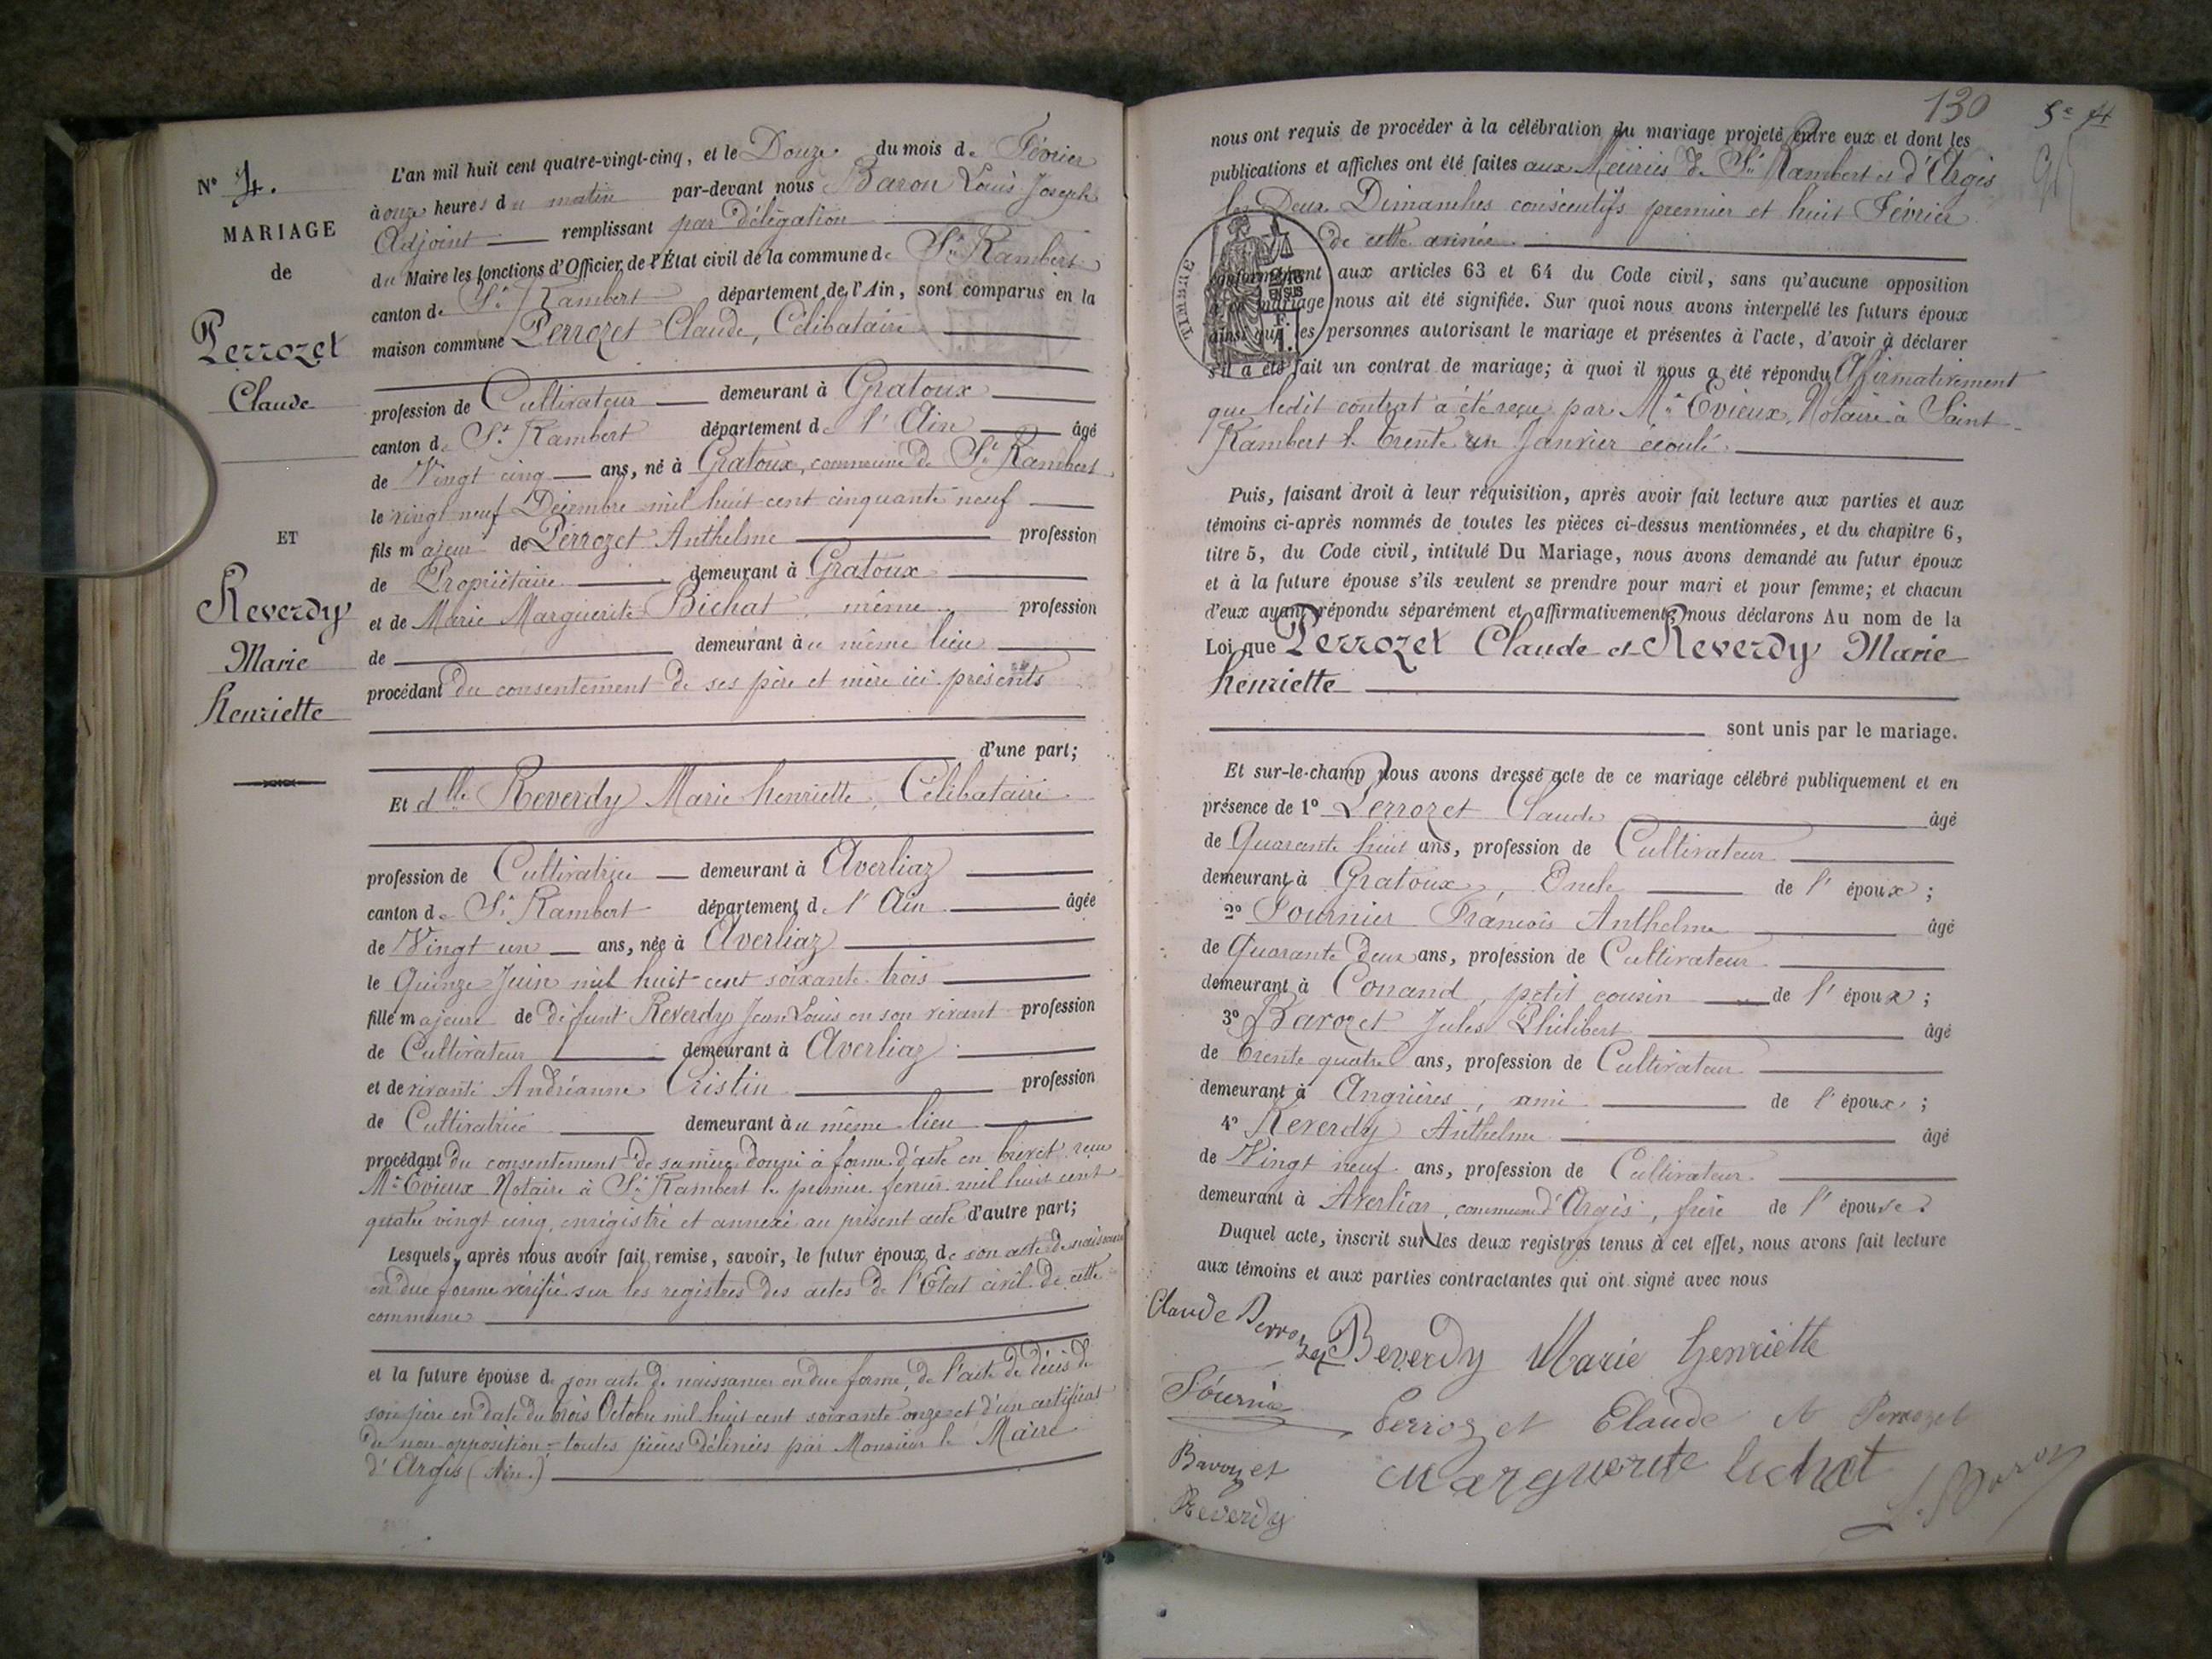 N° 4.
MARIAGE
de
Perrozet
Claude
ET
Reverdy
Marie
henriette
L'an mil huit cent quatre-vingt-cinq, et le Douze du mois de Février
à onze heures du matin par-devant nous Baron Louis Joseph
Adjoint remplissant par délégation
du Maire les fonctions d'Officier de l'État civil de la commune de St Rambert
canton de St Rambert département de l'Ain, sont comparus en la
maison commune Perrozet Claude, Célibataire
profession de Cultivateur demeurant à Gratoux
canton de St Rambert département de l'Ain âgé
de Vingt cinq ans, né à Gratoux, commune de St Rambert
le vingt neuf Décembre mil huit cent cinquante neuf
fils majeur de Perrozet Anthelme profession
de Propriétaire demeurant à Gratoux
et de Marie Marguerite Bichat même profession
de demeurant au même lieu
procédant du consentement de ses père et mère ici présents
d'une part;
Et dlle Reverdy Marie henriette, Célibataire
profession de Cultivatrice demeurant à Averliaz
canton de St Rambert département de l'Ain âgée
de Vingt un ans, née à Averliaz
le Quinze Juin mil huit cent soixante trois
fille majeure de défunt Reverdy Jean Louis en son vivant profession
de Cultivateur demeurant à Averliaz
et de vivante Andréanne Cristin profession
de Cultivatrice demeurant au même lieu
procédant du consentement de sa mère donné à forme d'acte en brevet reçu
Me Evieux Notaire à St Rambert le premier février mil huit cent
quatre vingt cinq, enregistré et annexé au présent acte d'autre part;
Lesquels, après nous avoir fait remise, savoir, le futur époux, de son acte de naissance
en due forme vérifié sur les registres des actes de l'Etat civil de cette
commune
et la future épouse de son acte de naissance en due forme, de l'acte de décès de
son père en date du trois Octobre mil huit cent soixante onze et d'un certificat
de non opposition = toutes pièces délivrées par Monsieur le Maire
d'Argis (Ain.)
130
nous ont requis de procéder à la célébration du mariage projeté entre eux et dont les
publications et affiches ont été faites aux Mairies de St Rambert et d'Argis
les Deux Dimanches consécutifs premier et huit Février
de cette année
conformément aux articles 63 et 64 du Code civil, sans qu'aucune opposition
mariage nous ait été signifiée. Sur quoi nous avons interpellé les futurs époux
ainsi que les personnes autorisant le mariage et présentes à l'acte, d'avoir à déclarer
s'il a été fait un contrat de mariage; à quoi il nous a été répondu Afirmativement
que ledit contrat a été reçu par Me Evieux, Notaire à Saint-
Rambert le trente un Janvier écoulé.
TIMBRE
Puis, faisant droit à leur réquisition, après avoir fait lecture aux parties et aux
témoins ci-après nommés de toutes les pièces ci-dessus mentionnées, et du chapitre 6,
titre 5, du Code civil, intitulé Du Mariage, nous avons demandé au futur époux
et à la future épouse s'ils veulent se prendre pour mari et pour femme; et chacun
d'eux ayant répondu séparément et affirmativement, nous déclarons Au nom de la
Loi que Perrozet Claude et Reverdy Marie
henriette
sont unis par le mariage.
Et sur-le-champ nous avons dressé acte de ce mariage célébré publiquement et en
présence de 1° Perrozet Claude âgé
de Quarante huit ans, profession de Cultivateur
demeurant à Gratoux, Oncle de l'époux;
2° Fournier Francois Anthelme âgé
de Quarante deux ans, profession de Cultivateur
demeurant à Conand, petit cousin de l'époux;
3° Barozet Jules Philibert âgé
de trente quatre ans, profession de Cultivateur
demeurant à Angrières, ami de l'époux;
4° Reverdy Anthelme âgé
de Vingt neuf ans, profession de Cultivateur
demeurant à Averliaz, commune d'Argis, frère de l'épouse.
Duquel acte, inscrit sur les deux registres tenus à cet effet, nous avons fait lecture
aux témoins et aux parties contractantes qui ont signé avec nous
Claude Perrozet Reverdy Marie henriette
Fournier
Perrozet Claude A Perrozet
Barozet Marguerite bichat
Reverdy L. Baron